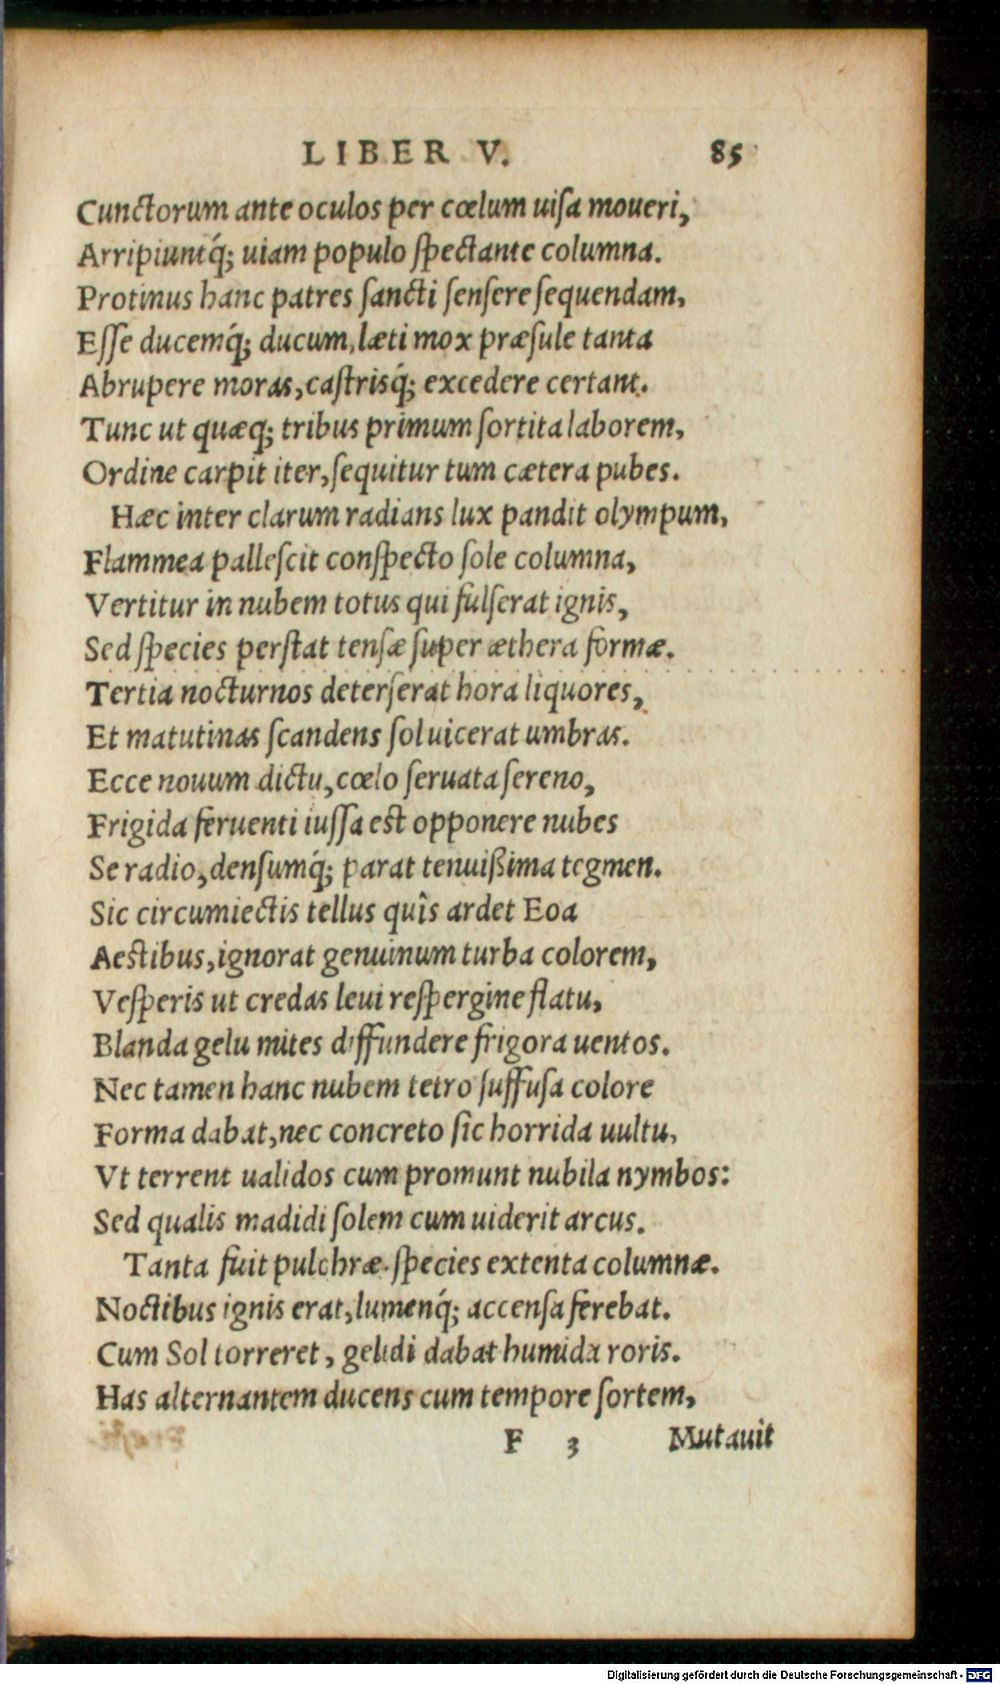 LIBER V. 85
Cunctorum ante oculos per cœlum uiſa moueri,
Arripiuntq́; uiam populo ſpectante columna.
Protinus hanc patres ſancti ſenſere ſequendam,
Eſſe ducemq́; ducum, læti mox præſule tanta
Abrupere moras, caſtrisq́; excedere certant.
Tunc ut quæq; tribus primum ſortita laborem,
Ordine carpit iter, ſequitur tum cætera pubes.
Hæc inter clarum radians lux pandit olympum,
Flammea palleſcit conſpecto ſole columna,
Vertitur in nubem totus qui fulſerat ignis,
Sed ſpecies perſtat tenſæ ſuper æthera formæ.
Tertia nocturnos deterſerat hora liquores,
Et matutinas ſcandens ſol uicerat umbras.
Ecce nouum dictu, cœlo ſeruata ſereno,
Frigida feruenti iuſſa est opponere nubes
Se radio, denſumq́; parat tenuißima tegmen.
Sic circumiectis tellus quîs ardet Eoa
Aestibus, ignorat genuinum turba colorem,
Veſperis ut credas leui reſpergine flatu,
Blanda gelu mites diffundere frigora uentos.
Nec tamen hanc nubem tetro ſuffuſa colore
Forma dabat, nec concreto ſic horrida uultu,
Vt terrent ualidos cum promunt nubila nymbos:
Sed qualis madidi ſolem cum uiderit arcus.
Tanta fuit pulchræ ſpecies extenta columnæ.
Noctibus ignis erat, lumenq́; accenſa ferebat.
Cum Sol torreret, gelidi dabat humida roris.
Has alternantem ducens cum tempore ſortem,
F 3 Mutauit
Digitalisierung gefördert durch die Deutsche Forschungsgemeinschaft - DFG